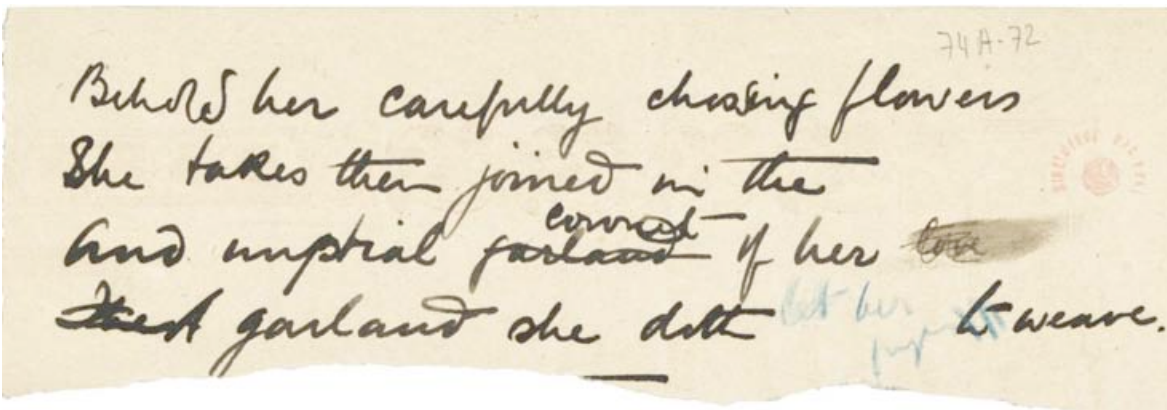 74A-72
Behold her carefully choosing flowers
She takes them joined in the
coronet
And nuptial garland of her love
garland she doth let her to weave.